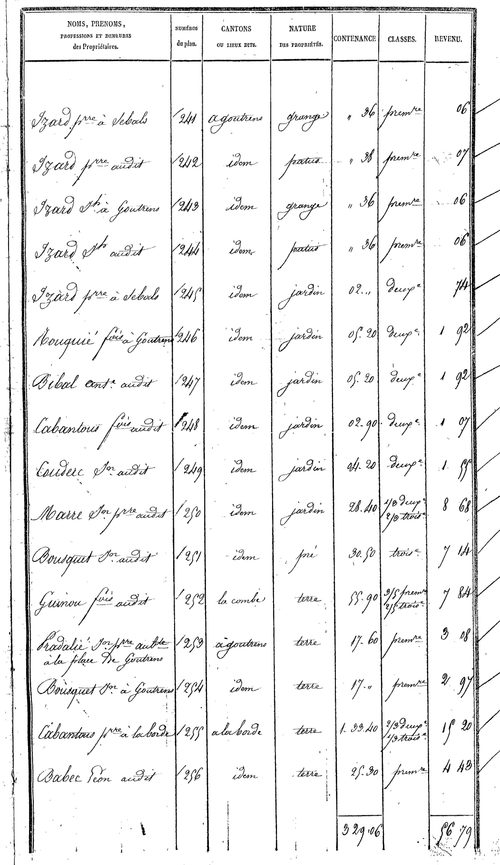 NOMS, PRENOMS, PROFESSIONS ET DEMEURES des Propriétaires. | NUMÉROS du plan. | CANTONS OU LIEUX DITS. | NATURE DES PROPRIÉTÉS. | CONTENANCE | CLASSES. | REVENU.
Izard pre à Sebals 1241 agoutrens grange " 36 premre 06
Izard pre audit 1242 idem patus " 38 premre 07
Izard Jh à Goutrens 1243 idem grange " 36 premre 06
Izard Jh audit 1244 idem patus " 36 premre 06
Izard pre à Sebals 1245 idem jardin 02 .. deuxe 74
Rouquié fois à Goutrens 1246 idem jardin 05.20 deuxe 1 92
Bibal ante audit 1247 idem jardin 05.20 deuxe 1 92
Cabantous fois audit 1248 idem jardin 02.90 deuxe 1 07
Couderc Jn audit 1249 idem jardin 04.20 deuxe 1 55
Marre Jn pre audit 1250 idem jardin 28.40 1/3 deuxe 2/3 troise 8 68
Bousquet Jn audit 1251 idem pré 30.50 troise 7 14
Guinou fois audit 1252 la combe terre 55.90 3/5 premre 2/5 troise 7 84
Pradalié Jn pre aubte 1253 à goutrens terre 17.60 premre 3 08
à la place De Goutrens
Bousquet Jn à Goutrens 1254 idem terre 17. " premre 2 97
Cabantous pre à laborde 1255 alaborde terre 1.33.40 2/3 deuxe 1/3 troise 15 20
Babec Léon audit 1256 idem terre 25.30 premre 4 43
329.06 56 79